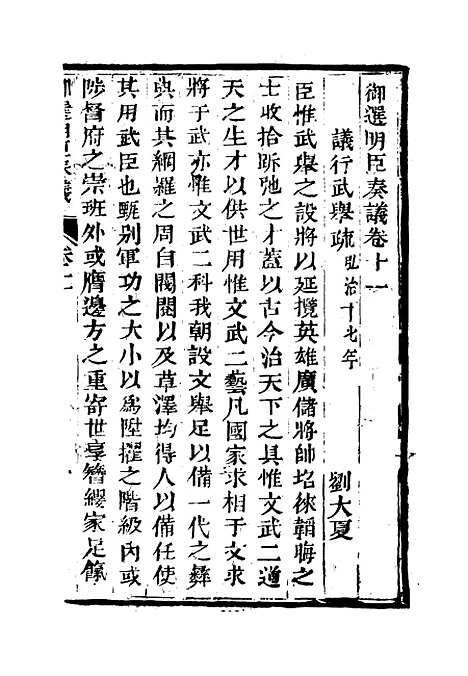 御選明臣奏議卷十一
議行武舉疏弘治十七年 劉大夏
臣惟武舉之設將以延攬英雄廣儲將帥招徠韜晦之
士收拾跅弛之才蓋以古今治天下之具惟文武二道
天之生才以供世用惟文武二藝凡國家求相于文求
將于武亦惟文武二科我朝設文舉足以備一代之彝
典而其網羅之周自閥閱以及草澤均得人以備任使
其用武臣也甄别軍功之大小以為陞擢之階級內或
陟督府之崇班外或膺邊方之重寄世享簪纓家足餼
御選明臣奏議 卷十一